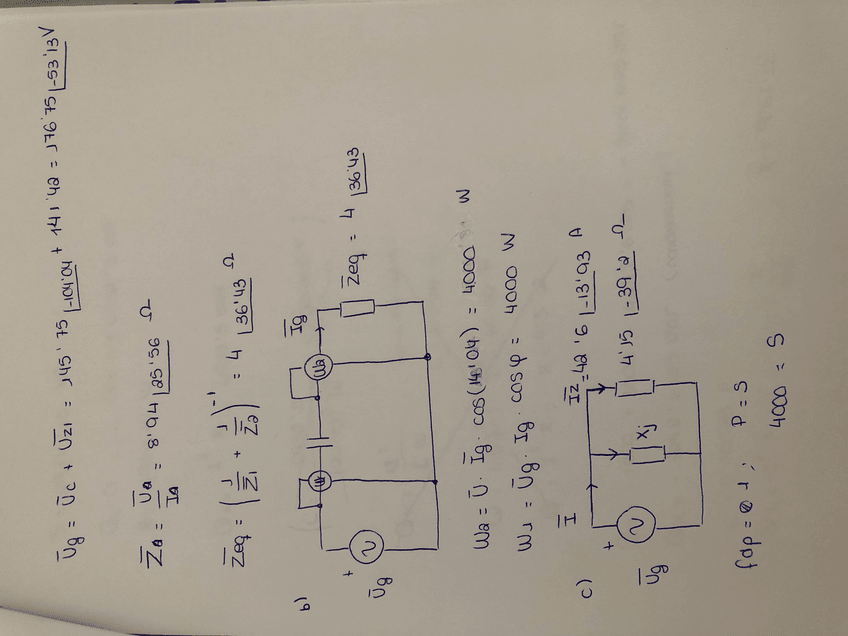 Ūg = Ūc + Ūz1 = 145'75 |-104'04 + 141'42 = 176'75 |-53'13 V
Z̄a = Ūa / Īa = 8'94 |25'56 Ω
Z̄eq = (1/Z̄1 + 1/Z̄2)⁻¹ = 4 |36'43 Ω
b)
+
Ūg
W1
W2
Īg
Z̄eq = 4 |36'43
W2 = Ū · Īg · cos(14'04) = 4000 W
W1 = Ūg · Ig · cos φ = 4000 W
c)
+
Ūg
Ī
Xj
Īz = 42'6 |-13'93 A
4'15 |-39'2 Ω
fdp = 1 ; P = S
4000 = S